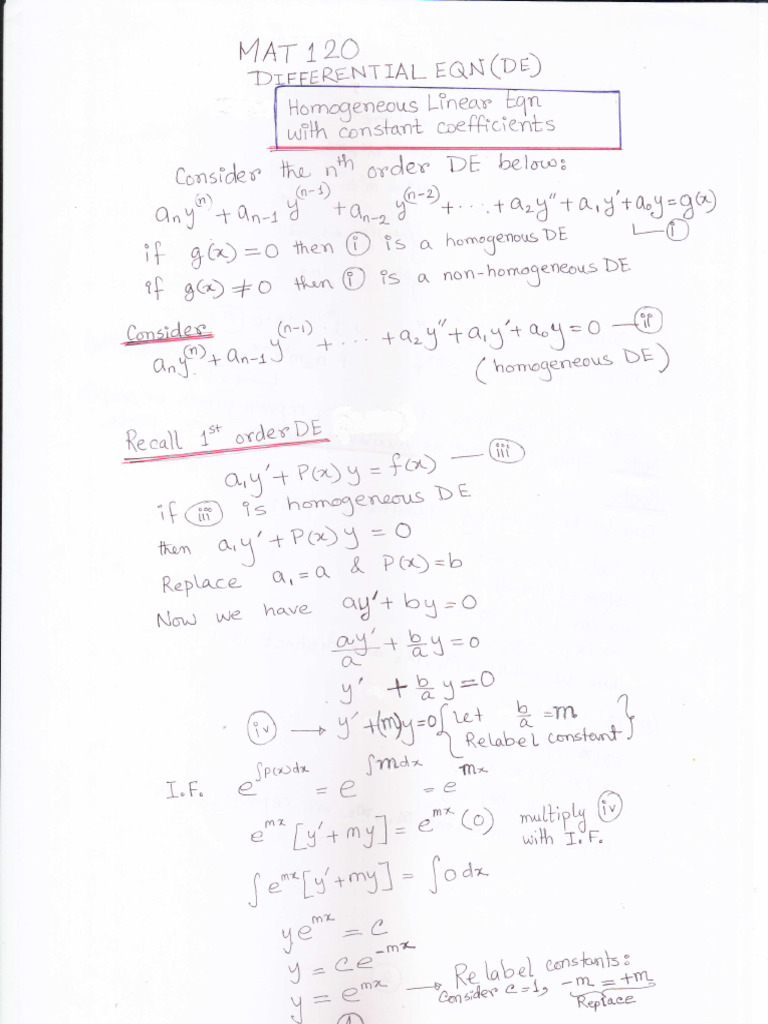 MAT 120
DIFFERENTIAL EQN (DE)
Homogeneous Linear Eqn
with constant coefficients
Consider the nth order DE below:
aₙy⁽ⁿ⁾ + aₙ₋₁ y⁽ⁿ⁻¹⁾ + aₙ₋₂ y⁽ⁿ⁻²⁾ + ... + a₂y″ + a₁y′ + a₀y = g(x)
if g(x) = 0 then ⓘ is a homogenous DE — ⓘ
if g(x) ≠ 0 then ⓘ is a non-homogeneous DE
Consider
aₙy⁽ⁿ⁾ + aₙ₋₁ y⁽ⁿ⁻¹⁾ + ... + a₂y″ + a₁y′ + a₀y = 0 — (ii)
(homogeneous DE)
Recall 1st order DE
a₁y′ + P(x) y = f(x) — (iii)
if (iii) is homogeneous DE
then a₁y′ + P(x) y = 0
Replace a₁ = a & P(x) = b
Now we have ay′ + by = 0
ay′/a + b/a y = 0
y′ + b/a y = 0
(iv) → y′ + (m)y = 0 { Let b/a = m
Relabel constant }
I.F. e^∫P(x)dx = e^∫mdx = e^mx
e^mx [y′ + my] = e^mx (0) multiply (iv)
with I.F.
∫e^mx [y′ + my] = ∫0 dx
ye^mx = c
y = ce^-mx
y = e^mx → Relabel constants:
Consider c = 1, -m = +m
Replace